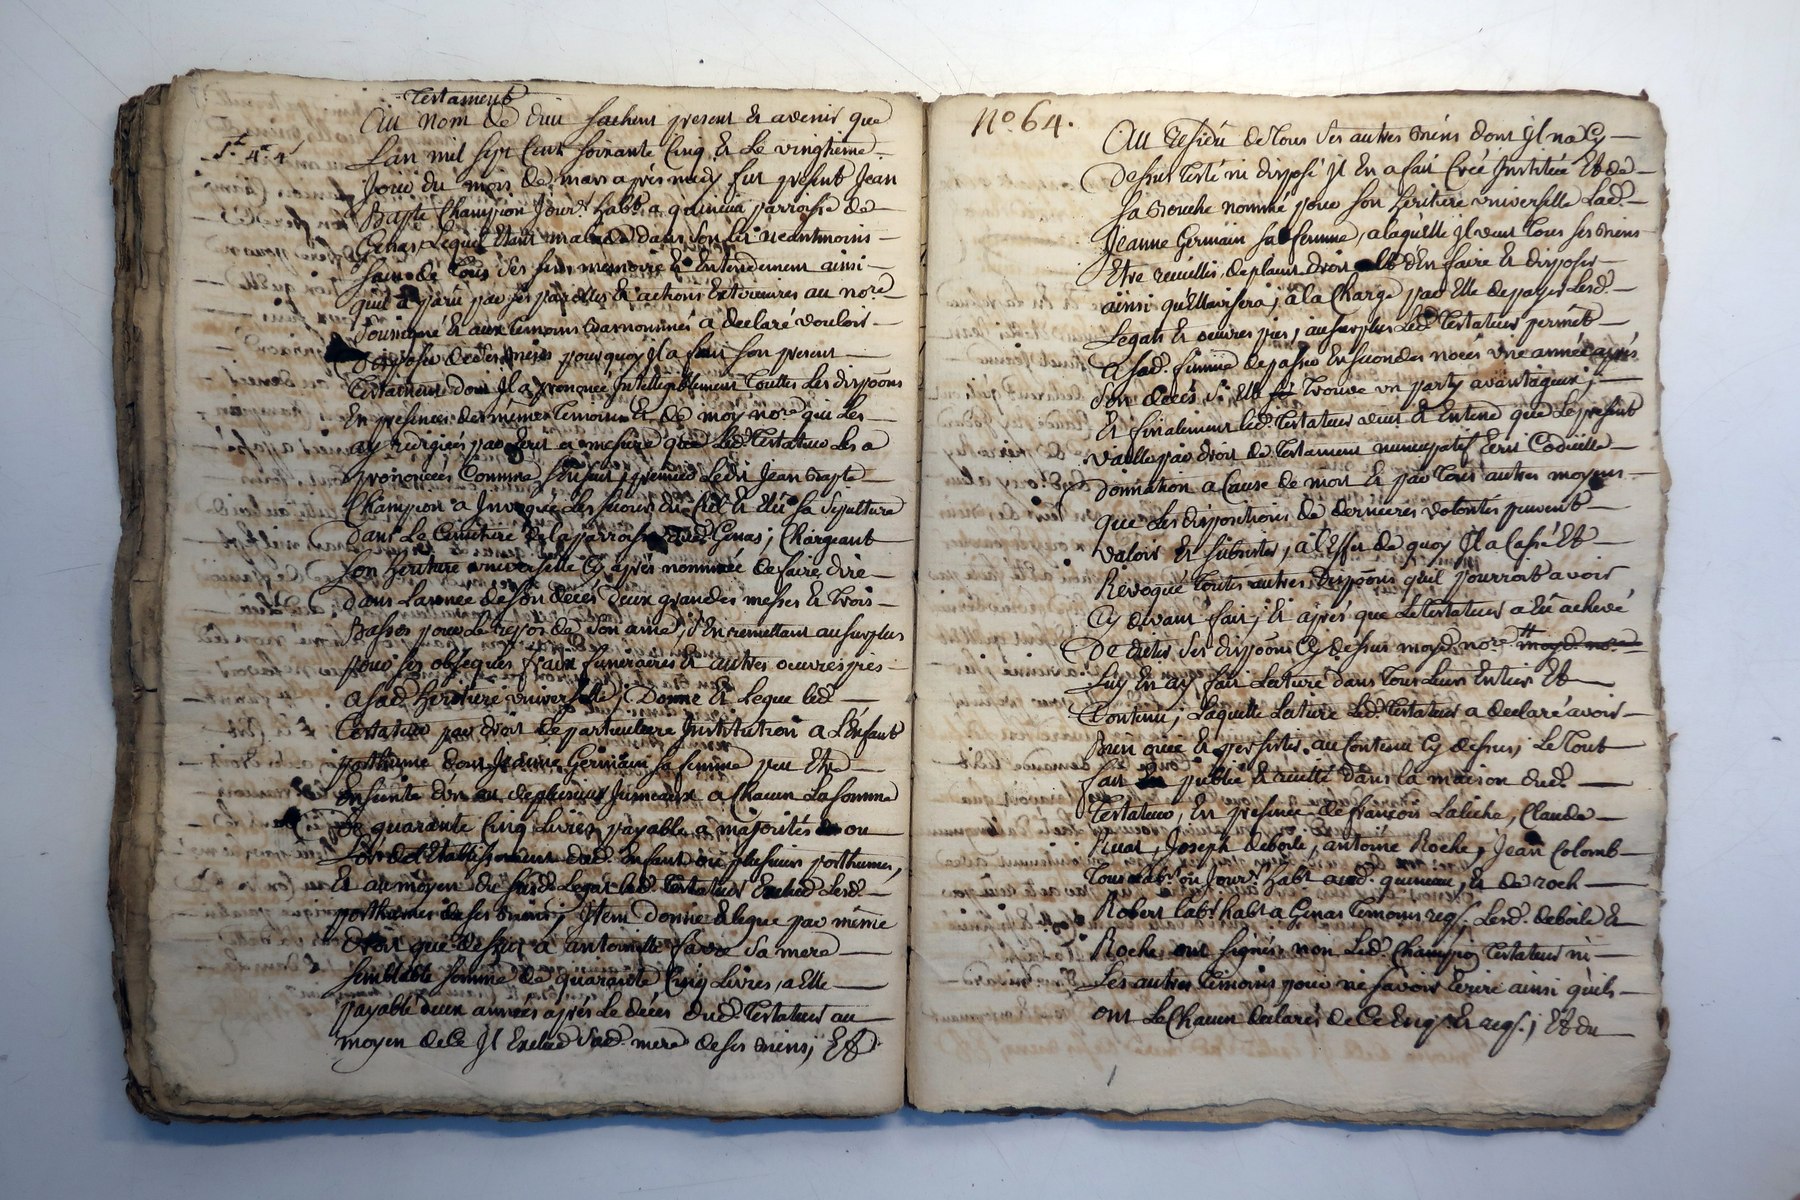 Testament
Au nom de dieu sachent present & avenir que
Lan mil sept Cent soixante Cinq & Le vingtieme
Jour du mois de mars apres midy fut present Jean
Bapte Champion Jourr. habt. a quineau parroisse de
Genas, Lequel Etant malade dans son lit neantmoins
sain de tous ses sens memoire & Entendement ainsi
quil a paru par ses parolles & actions Exterieures au nore
soussigné & aux temoins Bas nommés a declaré vouloir
disposer de ses Biens pourquoy Jl a fait son present
testament dont Jl a prononcé Jntelligiblement touttes Les dispoõns
En presence des mêmes temoins & de moy nore qui Les
ay redigées par Ecrit a mesure que Led. testateur Les a
prononcées Comme s'ensuit, premier Ledit Jean Bapte
Champion a Jnvoqué Les secours du Ciel & Elû sa sepulture
dans Le Cimetiere de la parroisse dud. Genas; Chargeant
son heritiere universelle Cy après nommée de faire dire
dans L'année de son decés deux grandes messes & trois
Basses pour Le repos de son ame, s'En remettant au surplus
pour ses obseques fraix funeraires & autres oeuvres pies
a sad. heritiere universelle; Donne & Legue led.
testateur par droit de particuliere Jnstitution a L'Enfant
posthume dont Jeanne Germain sa femme peu Etre
Enseinte d'un ou de plusieurs Jumeaux a Chacun La somme
de quarante Cinq Livres payable a majorités ou
Lors de L'Etablissement dud. Enfant ou plusieurs posthumes,
Et au moyen du susd. Legat led. testateur Exclud Lesd.
posthumes de ses Biens; Jtem donne & legue par même
droit que dessus a antoinette favre sa mere
semblable somme de quarante Cinq Livres, a Elle
payable deux années après Le decés dud. testateur au
moyen de Ce Jl Exclud sad. mere de ses Biens; Et
No. 64.
Au Residu de tous ses autres Biens dont Jl na Cy
dessus testé ni disposé Jl En a fait Creé Jnstitüé Et de
sa Bouche nommé pour son heritiere universelle Lad.
Jeanne Germain sa femme, a laquelle Jl veut tous ses Biens
Etre recuillis de plain droit Et d'En faire & disposer
ainsi qu'Elle avisera; a la Charge par Elle de payer Lesd.
Legats & oeuvres pies; au surplus Led. testateur permet
a sad. femme de passer En secondes noces une année après
son decés si Elle trouve un party avantageux;
Et finalement led. testateur veut & Entend que Le present
vaille par droit de testament nuncupatif Ecrit Codicille
donnation a Cause de mort & par tous autres moyens
que Les dispositions de dernieres volontés peuvent
valoir & subsister, a l'Effet de quoy Jl a Cassé Et
Revoqué toutes autres dispoõns qu'il pourroit avoir
Cy devant fait; Et après que Le testateur a Eû achevé
De dicter ses dispoõns Cy dessus moyd. nore moyd. nore
Luy En ay fait Lecture dans tout Leur Entier Et
Contenu; Laquelle Lecture Led. testateur a declaré avoir
Bien ouie & persister au Contenu Cy dessus; Le tout
fait publié & recité dans la maison dud.
testateur, En presence de françois Laleche, Claude
Ruat, Joseph deboile, antoine Roche, Jean Colomb
tous Labrs. ou Jourrs. habt. aud. quineau, & de roch
Robert Labr. habt a Genas temoins reqs. Lesd. deboile &
Roche ont signés non Led. Champion testateur ni
Les autres temoins pour ne savoir Ecrire ainsi qu'ils
ont Le Chacun declarés de Ce Enqs. & reqs.; Et du